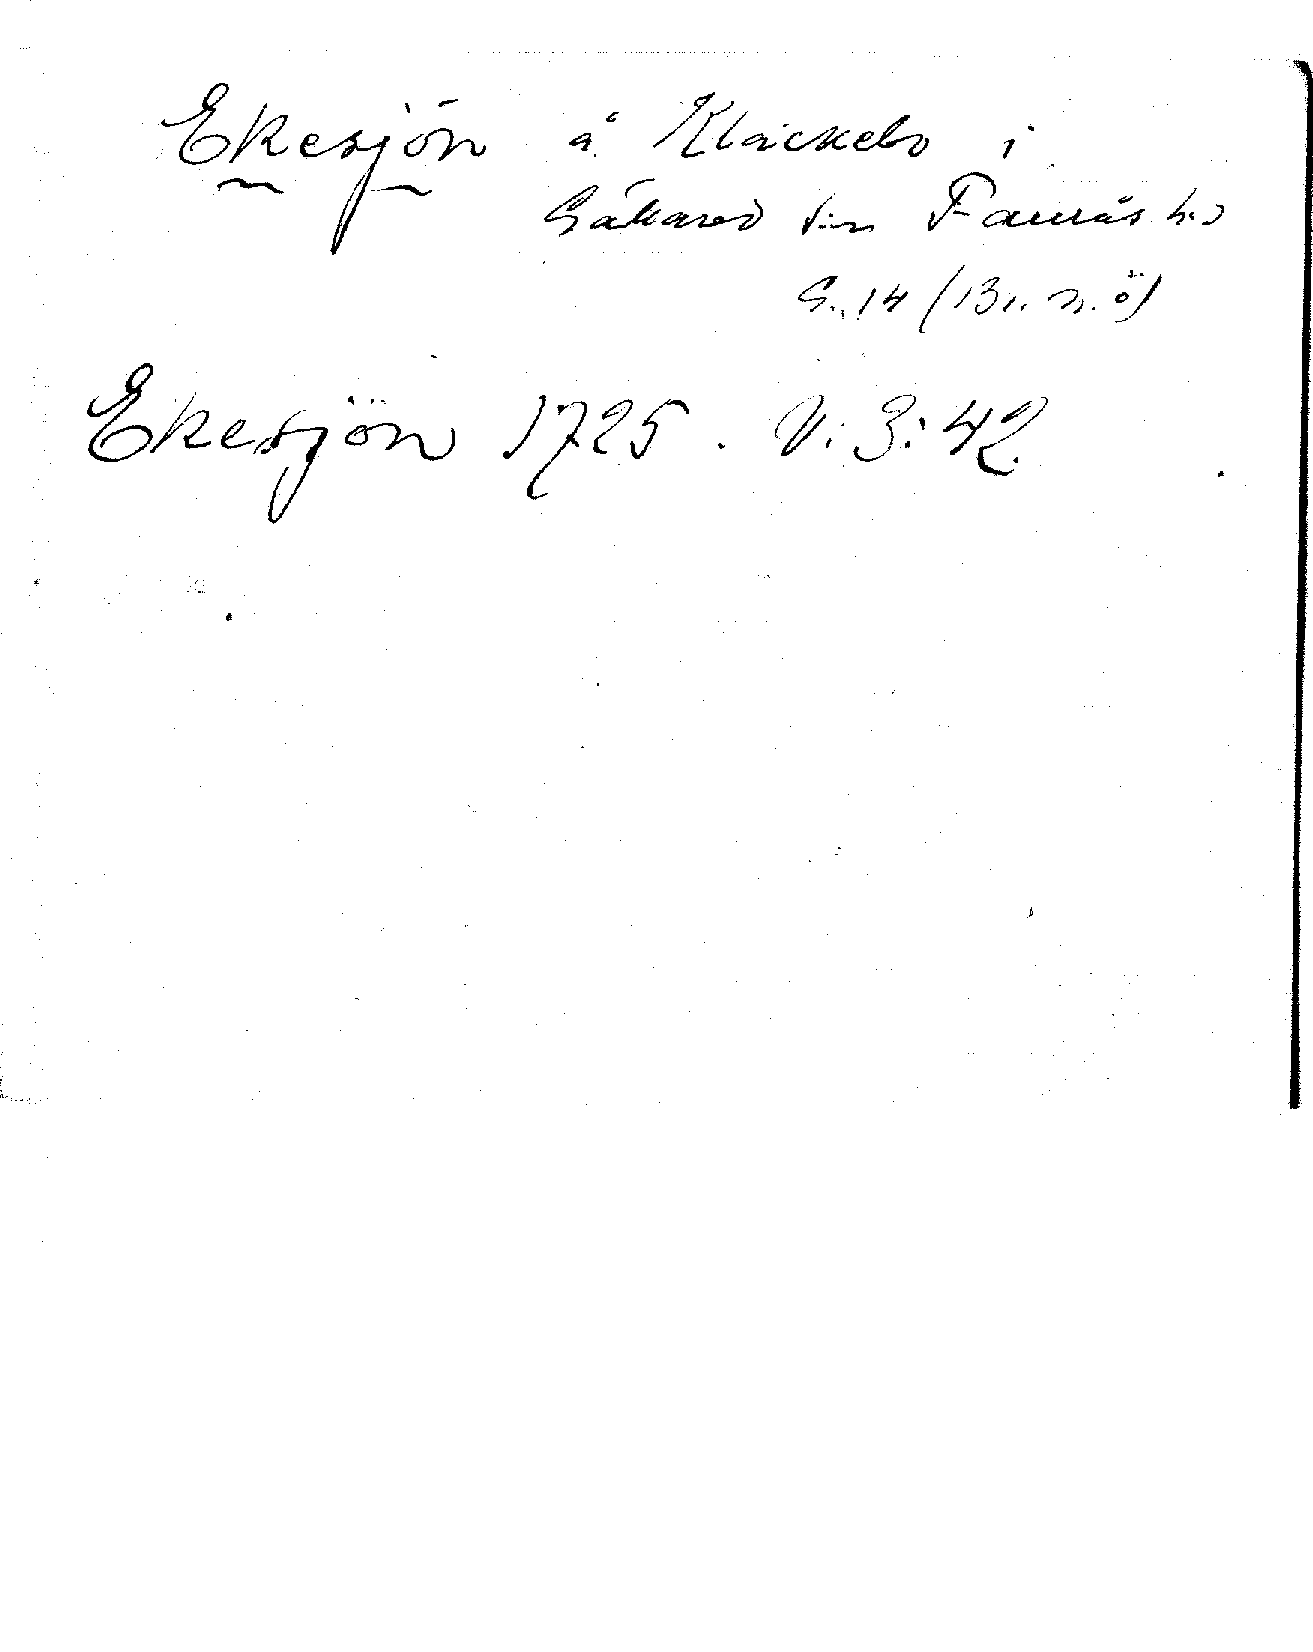 Ekesjön å Kläckebo i
Gällared sn Faurås hd
G. 14 (Bl. n. ö)
Ekesjön 1725. V: 3: 42.